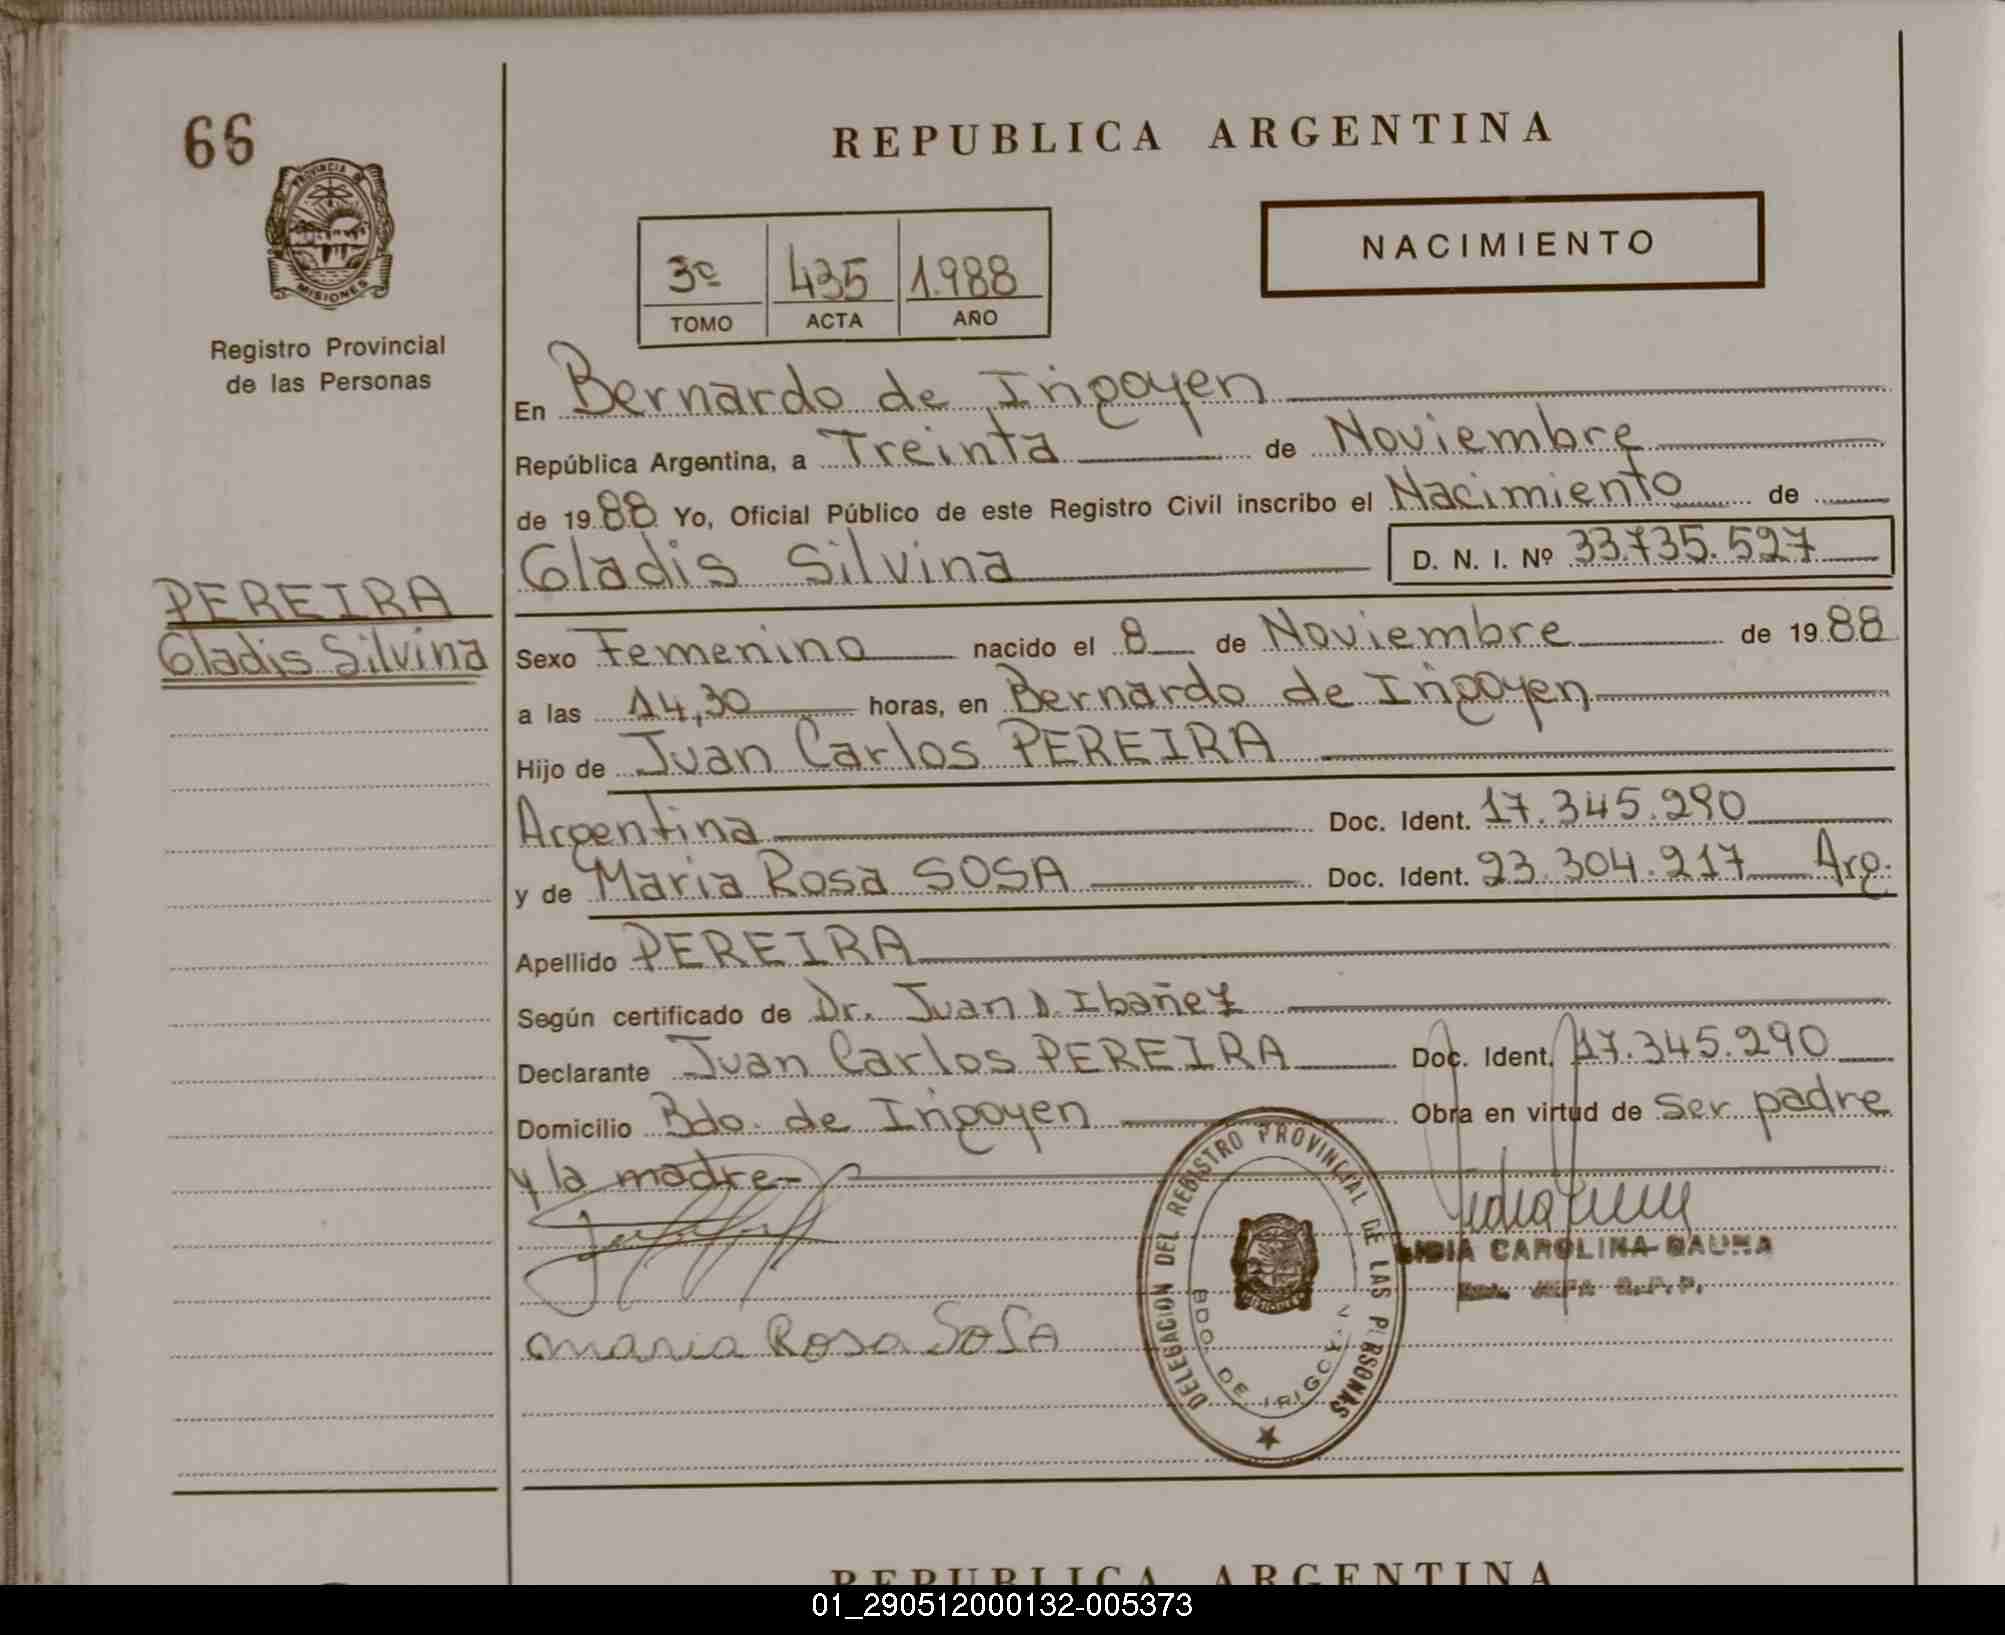 66
REPUBLICA ARGENTINA
PROVINCIA DE
MISIONES
Registro Provincial
de las Personas
NACIMIENTO
3º 435 1.988
TOMO ACTA AÑO
En Bernardo de Irigoyen
República Argentina, a Treinta de Noviembre
de 1988 Yo, Oficial Público de este Registro Civil inscribo el Nacimiento de
Gladis Silvina D. N. I. Nº 33.735.527
PEREIRA
Gladis Silvina
Sexo Femenino nacido el 8 de Noviembre de 1988
a las 14,30 horas, en Bernardo de Irigoyen
Hijo de Juan Carlos PEREIRA
Argentina Doc. Ident. 17.345.290
y de Maria Rosa SOSA Doc. Ident. 23.304.217 Arg.
Apellido PEREIRA
Según certificado de Dr. Juan D. Ibañez
Declarante Juan Carlos PEREIRA Doc. Ident. 17.345.290
Domicilio Bdo. de Irigoyen Obra en virtud de ser padre
y la madre-
DELEGACION DEL REGISTRO PROVINCIAL DE LAS PERSONAS
BDO. DE IRIGOYEN
MISIONES
LIDIA CAROLINA
maria Rosa SoSA
REPUBLICA ARGENTINA
01_290512000132-005373